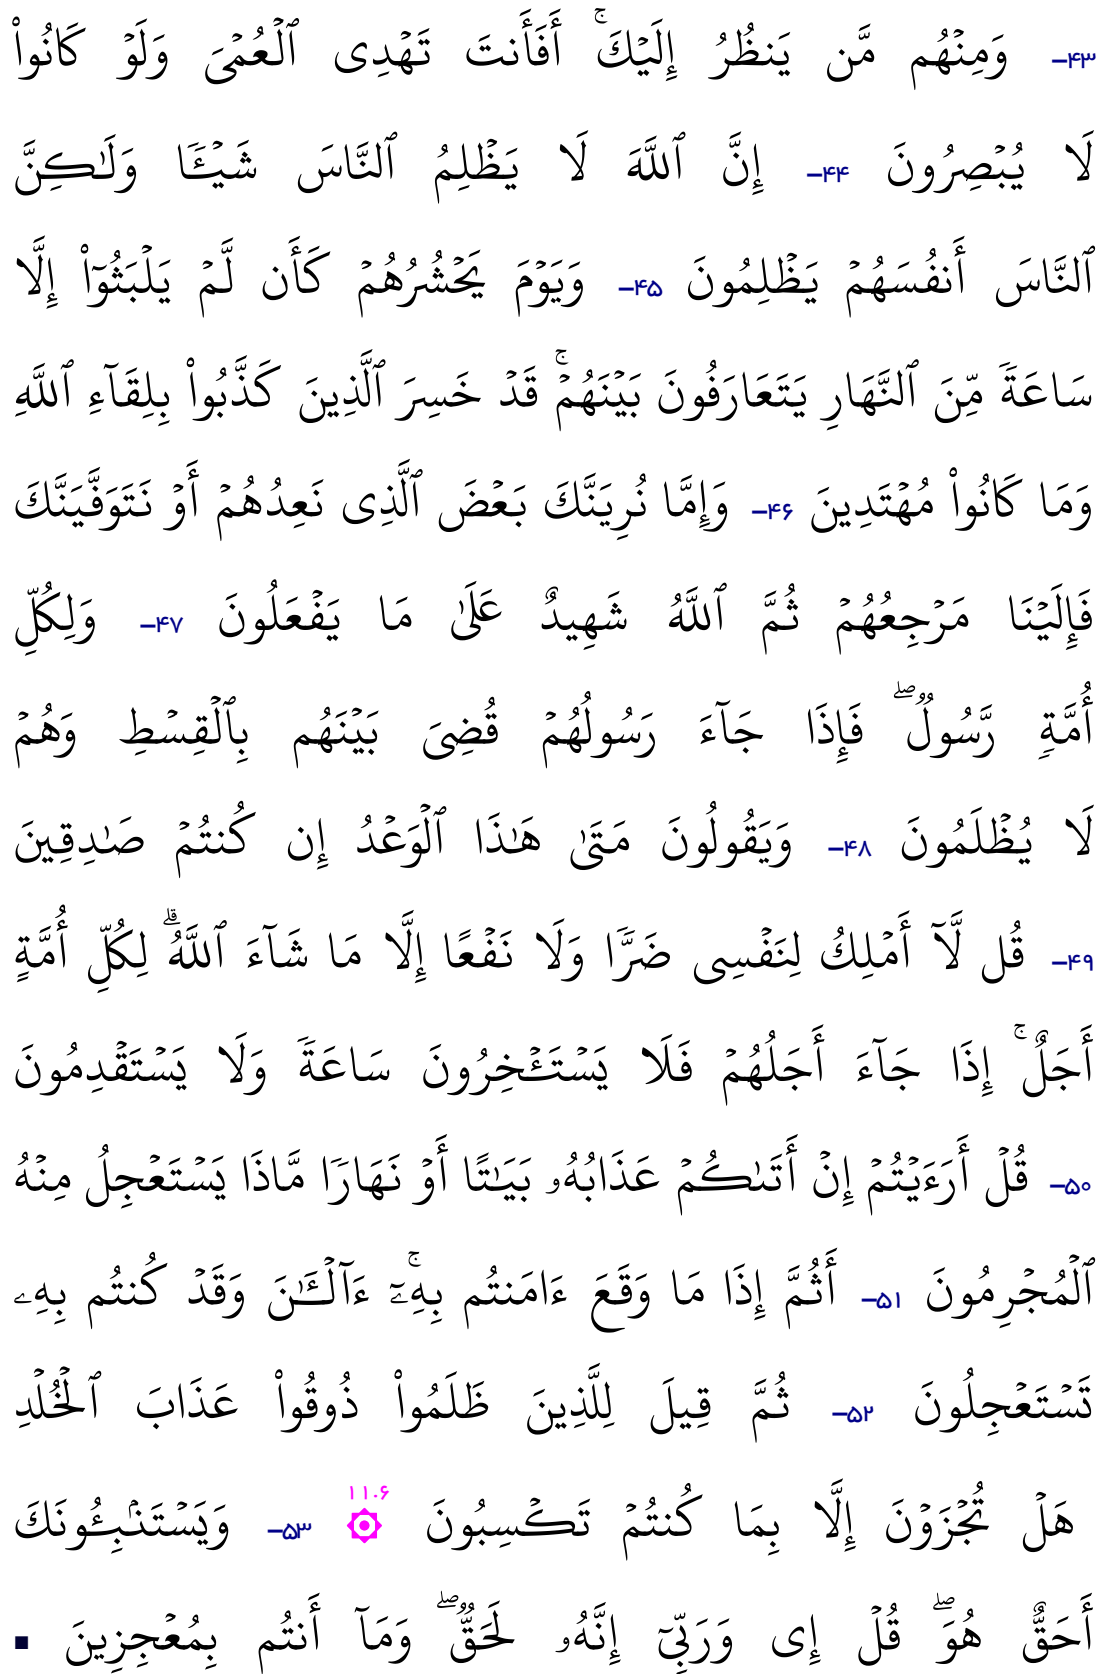 ۴۳- وَمِنْهُم مَّن يَنظُرُ إِلَيْكَ ۚ أَفَأَنتَ تَهْدِى ٱلْعُمْىَ وَلَوْ كَانُوا۟
لَا يُبْصِرُونَ ۴۴- إِنَّ ٱللَّهَ لَا يَظْلِمُ ٱلنَّاسَ شَيْـًٔا وَلَـٰكِنَّ
ٱلنَّاسَ أَنفُسَهُمْ يَظْلِمُونَ ۴۵- وَيَوْمَ يَحْشُرُهُمْ كَأَن لَّمْ يَلْبَثُوٓا۟ إِلَّا
سَاعَةً مِّنَ ٱلنَّهَارِ يَتَعَارَفُونَ بَيْنَهُمْ ۚ قَدْ خَسِرَ ٱلَّذِينَ كَذَّبُوا۟ بِلِقَآءِ ٱللَّهِ
وَمَا كَانُوا۟ مُهْتَدِينَ ۴۶- وَإِمَّا نُرِيَنَّكَ بَعْضَ ٱلَّذِى نَعِدُهُمْ أَوْ نَتَوَفَّيَنَّكَ
فَإِلَيْنَا مَرْجِعُهُمْ ثُمَّ ٱللَّهُ شَهِيدٌ عَلَىٰ مَا يَفْعَلُونَ ۴۷- وَلِكُلِّ
أُمَّةٍ رَّسُولٌ ۖ فَإِذَا جَآءَ رَسُولُهُمْ قُضِىَ بَيْنَهُم بِٱلْقِسْطِ وَهُمْ
لَا يُظْلَمُونَ ۴۸- وَيَقُولُونَ مَتَىٰ هَـٰذَا ٱلْوَعْدُ إِن كُنتُمْ صَـٰدِقِينَ
۴۹- قُل لَّآ أَمْلِكُ لِنَفْسِى ضَرًّا وَلَا نَفْعًا إِلَّا مَا شَآءَ ٱللَّهُ ۗ لِكُلِّ أُمَّةٍ
أَجَلٌ ۚ إِذَا جَآءَ أَجَلُهُمْ فَلَا يَسْتَـْٔخِرُونَ سَاعَةً وَلَا يَسْتَقْدِمُونَ
۵۰- قُلْ أَرَءَيْتُمْ إِنْ أَتَىٰكُمْ عَذَابُهُۥ بَيَـٰتًا أَوْ نَهَارًا مَّاذَا يَسْتَعْجِلُ مِنْهُ
ٱلْمُجْرِمُونَ ۵۱- أَثُمَّ إِذَا مَا وَقَعَ ءَامَنتُم بِهِۦٓ ۚ ءَآلْـَٔـٰنَ وَقَدْ كُنتُم بِهِۦ
تَسْتَعْجِلُونَ ۵۲- ثُمَّ قِيلَ لِلَّذِينَ ظَلَمُوا۟ ذُوقُوا۟ عَذَابَ ٱلْخُلْدِ
هَلْ تُجْزَوْنَ إِلَّا بِمَا كُنتُمْ تَكْسِبُونَ ۞ ۱۱۰۶ ۵۳- وَيَسْتَنۢبِـُٔونَكَ
أَحَقٌّ هُوَ ۖ قُلْ إِى وَرَبِّىٓ إِنَّهُۥ لَحَقٌّ ۖ وَمَآ أَنتُم بِمُعْجِزِينَ ■